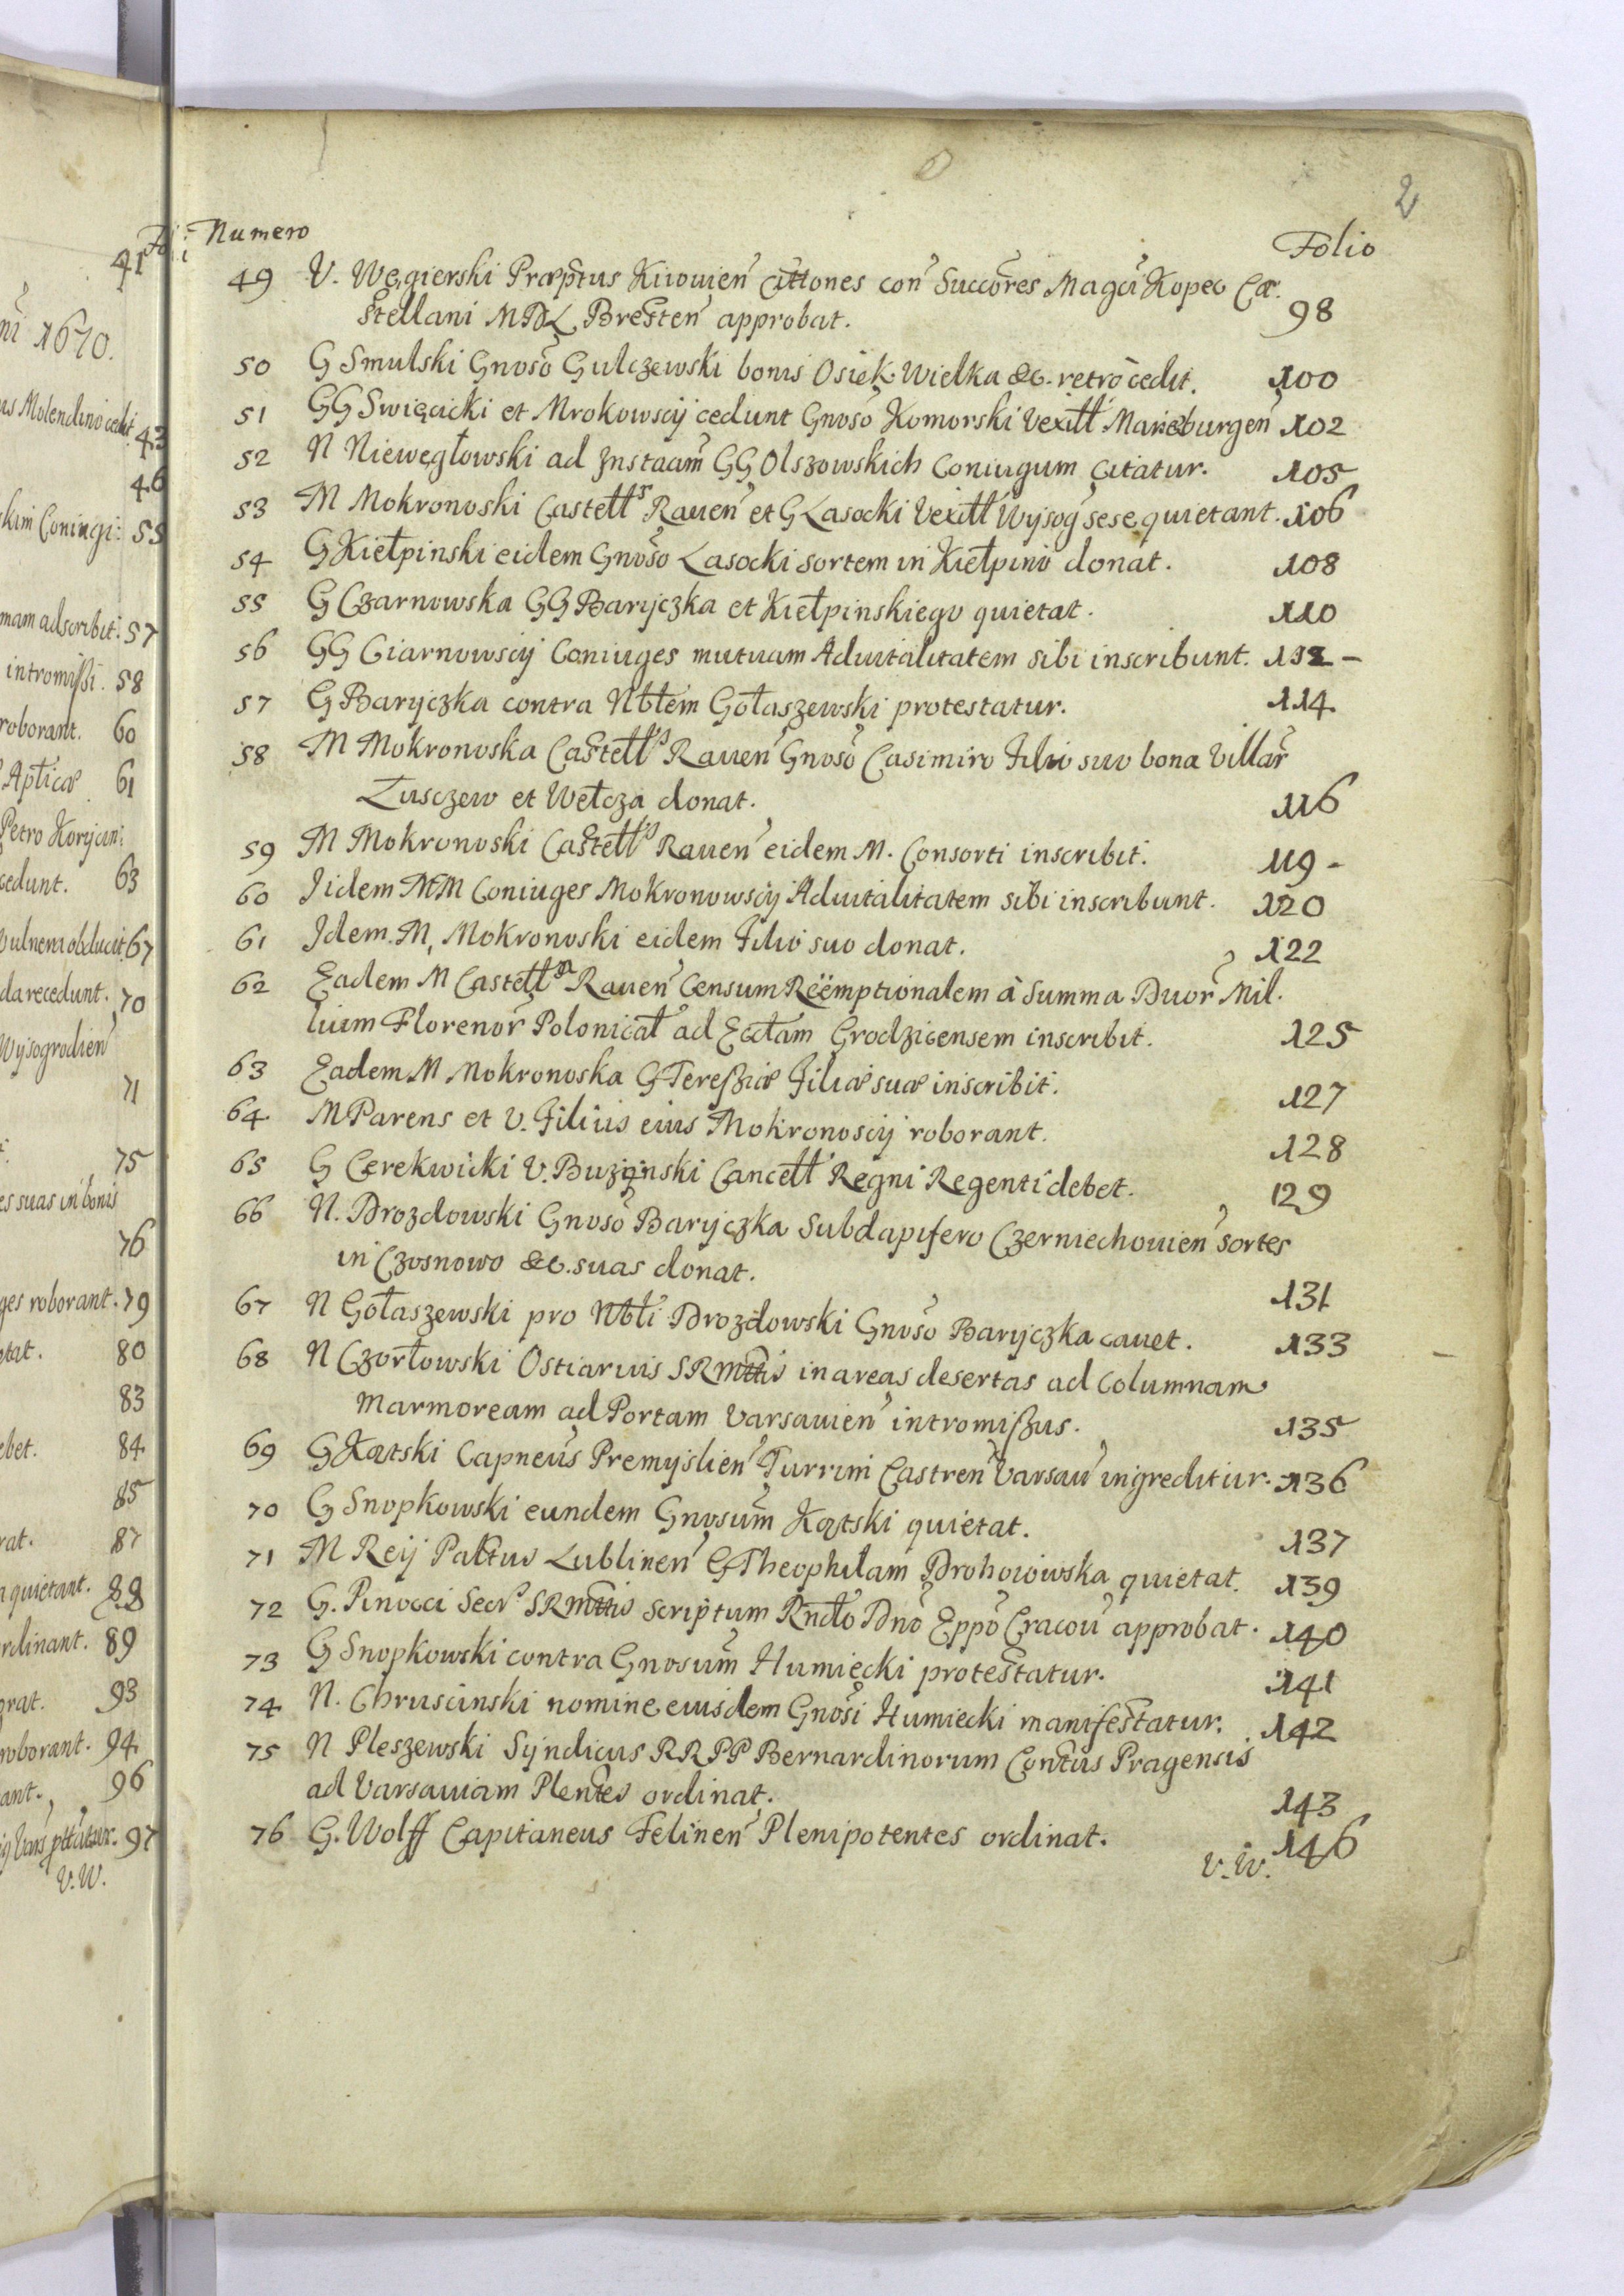 2
Numero Folio
49 V. Węgierski Præptus Kiiouien̄ Cittones con̄ Succōres Magci Kopec Ca:
stellani MDL Bresten̄ approbat. 98
50 G Smulski Gnoso Gulczewski bonis Osiek Wielka &c. retrò cedit. 100
51 GG Swięcicki et Mrokowscÿ cedunt Gnoso Komorski Vexill Marieburgen̄ 102
52 N Niewegłowski ad Instaam̄ GG Olszowskich Coniugum citatur. 105
53 M Mokronoski Castells Rauen̄ et G Lasocki Vexill Wysog sese quietant. 106
54 G Kiełpinski eidem Gnoso Lasocki sortem in Kiełpino donat. 108
55 G Czarnowska GG Baryczka et Kiełpinskiego quietat. 110
56 GG Ciarnowscÿ Coniuges mutuam Aduitalitatem sibi inscribunt. 112 -
57 G Baryczka contra Nblem Gołaszewski protestatur. 114
58 M Mokronoska Castells Rauen̄ Gnoso Casimiro Filio suo bona Villar̄
Lusczew et Wełcza donat. 116
59 M Mokronoski Castells Rauen̄ eidem M. Consorti inscribit. 119 -
60 Iidem MM Coniuges Mokronowscÿ Aduitalitatem sibi inscribunt. 120
61 Idem M, Mokronoski eidem Filio suo donat. 122
62 Eadem M Castella Rauen̄ Censum Reëmptionalem à Summa Duor̄ Mil.
lium Florenor̄ Polonical̄ ad Ecclam Grodzicensem inscribit. 125
63 Eadem M Mokronoska G Tereßiæ Filiæ suæ inscribit. 127
64 M Parens et V. Filius eius Mokronoscÿ roborant. 128
65 G Cerekwicki V. Buzinski Cancell Regni Regenti debet. 129
66 N. Drozdowski Gnoso Baryczka Subdapifero Czerniechouien̄ sortes
in Czosnowo &c. suas donat. 131
67 N Gołaszewski pro Nbli Drozdowski Gnoso Baryczka cauet. 133
68 N Czorłowski Ostiarius SRMttis in areas desertas ad Columnam
Marmoream ad Portam Varsauien̄ intromißus. 135
69 G Kątski Capneus Premyslien̄ Turrim Castren̄ Varsau ingreditur. 136
70 G Snopkowski eundem Gnosum Kątski quietat. 137
71 M Reÿ Palttus Lublinen̄ G Theophilam Drohoiowska quietat. 139
72 G. Pinocci Secr SRMttis scriptum Rndo Dno Eppo Cracou approbat. 140
73 G Snopkowski contra Gnosum Humiecki protestatur. 141
74 N. Chruscinski nomine eiusdem Gnosi Humiecki manifestatur. 142
75 N Pleszewski Syndicus RRPP Bernardinorum Contus Pragensis
ad Varsauiam Plentes ordinat. 143
76 G. Wolff Capitaneus Felinen̄ Plenipotentes ordinat. 146
v.W.
41
ni 1670.
us Molendino cedit 43
46
skim Coniugi: 55
mam adscribit. 57
intromißi. 58
roborant. 60
Aplicæ 61
Petro Korycin:
cedunt. 63
Vulnera obducit 67
da recedunt. 70
Wysogrodien̄
71
75
es suas in bonis
76
ges roborant. 79
tat. 80
83
ebet. 84
85
rat. 87
quietant. 88
ordinant. 89
orat. 93
roborant. 94
ant. 96
Vars pttatur. 97
V.W.